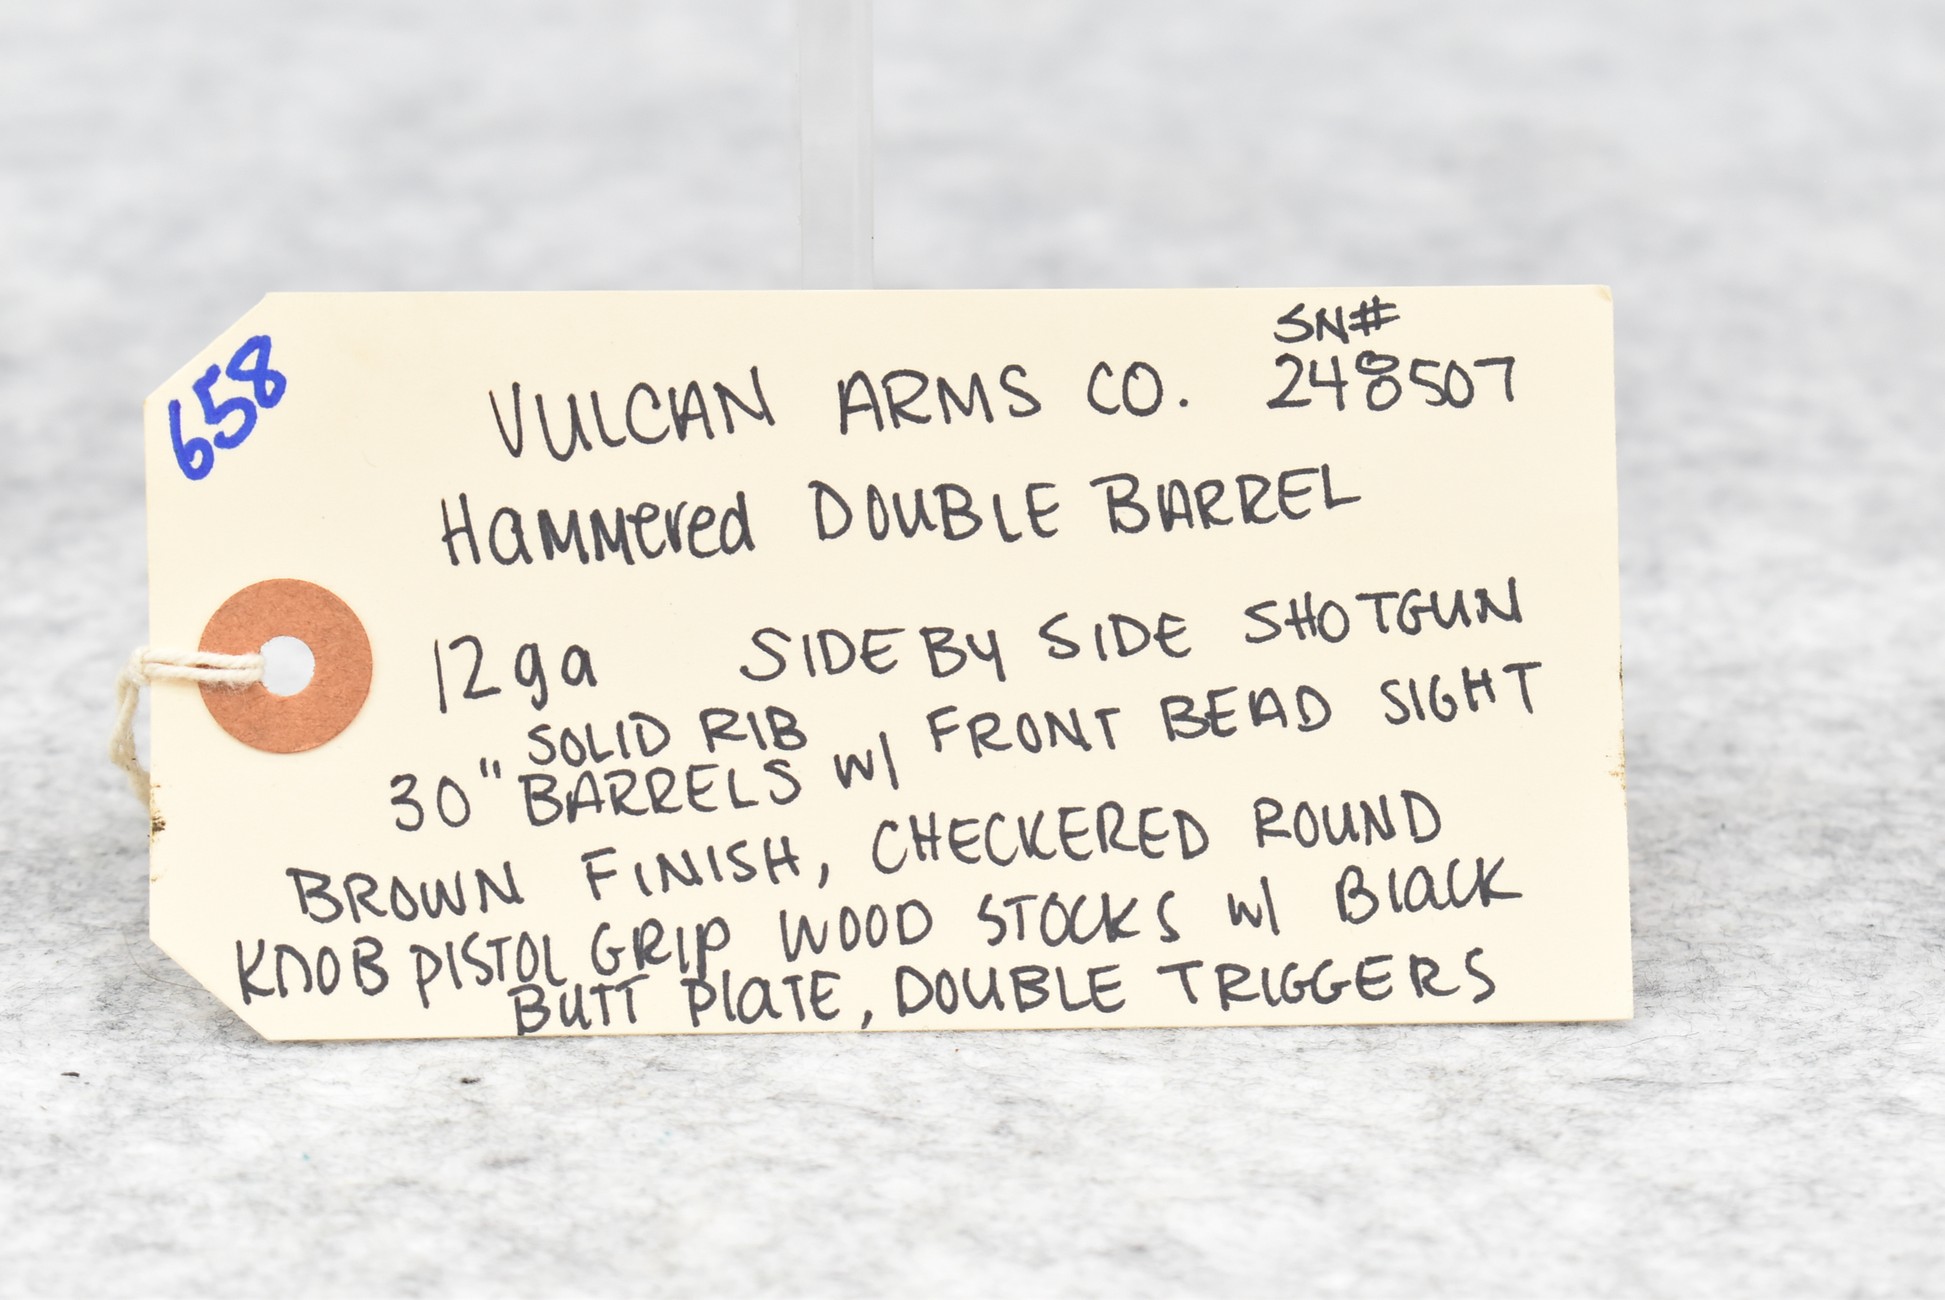 658
SN#
VULCAN ARMS CO. 248507
Hammered DOUBLE BARREL
12ga SIDE BY SIDE SHOTGUN
SOLID RIB
30" BARRELS w/ FRONT BEAD SIGHT
BROWN FINISH, CHECKERED ROUND
KNOB PISTOL GRIP WOOD STOCKS w/ Black
BUTT PlATE, DOUBLE TRIGGERS